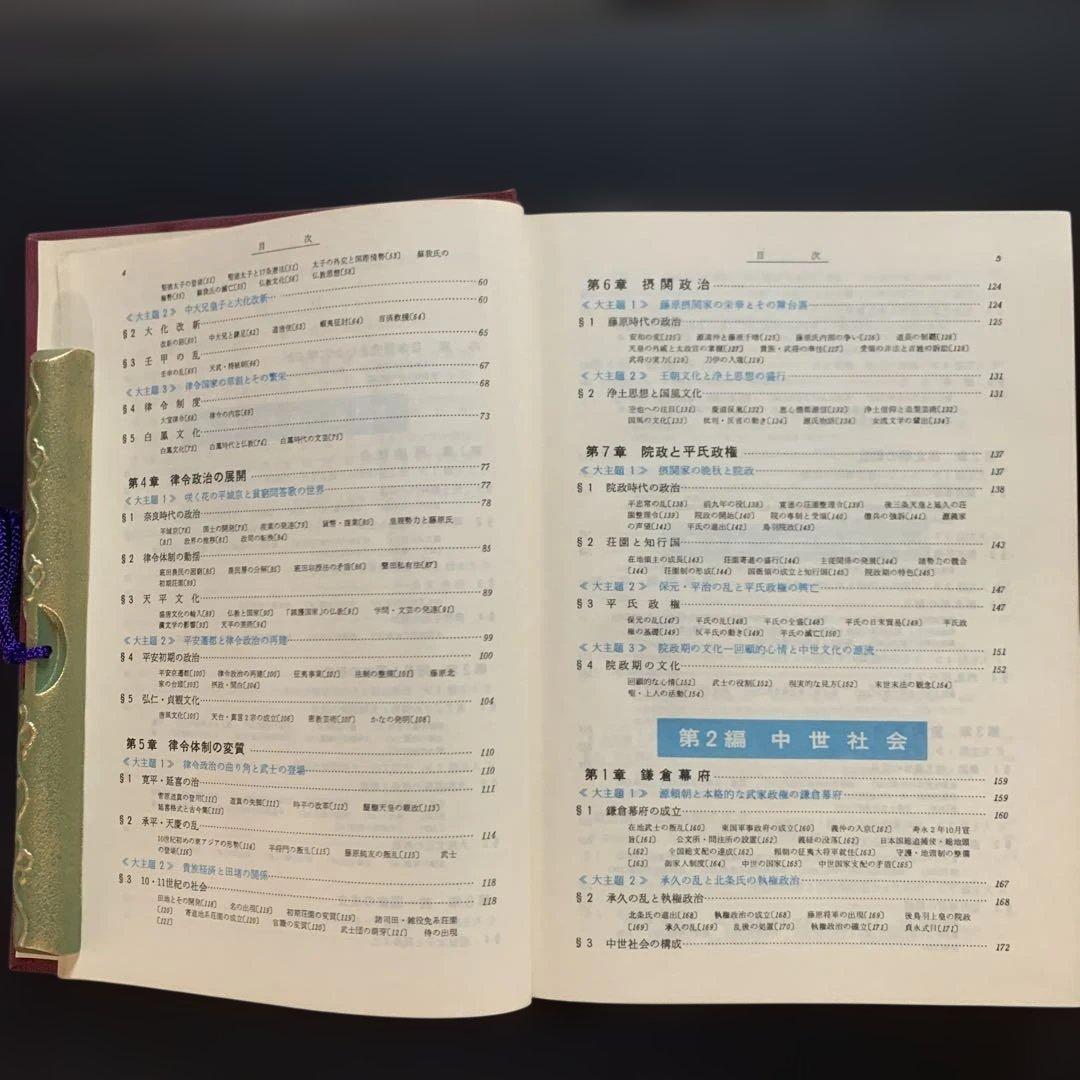 目　次
4
聖徳太子の登場〔51〕　聖徳太子と17条憲法〔52〕　太子の外交と国際情勢〔53〕　蘇我氏の
専横〔55〕　蘇我氏の滅亡〔55〕　仏教文化〔56〕　仏教思想〔58〕
《大主題2》 中大兄皇子と大化改新 60
§2 大化改新 60
改新の詔〔61〕　中大兄と鎌足〔62〕　遣唐使〔63〕　蝦夷征討〔64〕　百済救援〔64〕
§3 壬申の乱 65
壬申の乱〔65〕　天武・持統朝〔66〕
《大主題3》 律令国家の草創とその繁栄 67
§4 律令制度 68
大宝律令〔68〕　律令の内容〔69〕
§5 白鳳文化 73
白鳳文化〔73〕　白鳳時代と仏教〔74〕　白鳳時代の文芸〔75〕
第4章 律令政治の展開 77
《大主題1》 咲く花の平城京と貧窮問答歌の世界 77
§1 奈良時代の政治 78
平城京〔78〕　国土の開発〔79〕　産業の発達〔79〕　貨幣・商業〔80〕　皇親勢力と藤原氏
〔81〕　政界の推移〔81〕　政局の転換〔84〕
§2 律令体制の動揺 85
班田農民の困窮〔85〕　農民層の分解〔86〕　班田収授法の矛盾〔86〕　墾田私有法〔87〕
初期荘園〔88〕
§3 天平文化 89
盛唐文化の輸入〔89〕　仏教と国家〔90〕　「鎮護国家」の仏教〔91〕　学問・文芸の発達〔91〕
漢文学の影響〔93〕　天平の美術〔94〕
《大主題2》 平安遷都と律令政治の再建 99
§4 平安初期の政治 100
平安京遷都〔100〕　律令政治の再建〔100〕　征夷事業〔101〕　法制の整備〔101〕　藤原北
家の台頭〔103〕　摂政・関白〔104〕
§5 弘仁・貞観文化 104
唐風文化〔105〕　天台・真言2宗の成立〔106〕　密教芸術〔107〕　かなの発明〔108〕
第5章 律令体制の変質 110
《大主題1》 律令政治の曲り角と武士の登場 110
§1 寛平・延喜の治 111
菅原道真の登用〔111〕　道真の失脚〔111〕　時平の改革〔112〕　醍醐天皇の親政〔113〕
延喜格式と古今集〔113〕
§2 承平・天慶の乱 114
10世紀初めの東アジアの形勢〔114〕　平将門の叛乱〔115〕　藤原純友の叛乱〔115〕　武士
の登場〔116〕
《大主題2》 貴族経済と田堵の関係 118
§3 10・11世紀の社会 118
田地とその開発〔118〕　名の出現〔119〕　初期荘園の変質〔119〕　諸司田・雑役免系荘園
〔120〕　寄進地系荘園の成立〔120〕　官職の変質〔120〕　武士団の萌芽〔121〕　侍の出現
〔121〕
目　次
5
第6章 摂関政治 124
《大主題1》 藤原摂関家の栄華とその舞台裏 124
§1 藤原時代の政治 125
安和の変〔125〕　源満仲と藤原千晴〔125〕　藤原氏内部の争い〔126〕　道長の制覇〔126〕
天皇の外戚と太政官の掌握〔127〕　貴族・武将の奉仕〔127〕　受領の非法と百姓の訴訟〔128〕
武将の実力〔128〕　刀伊の入寇〔129〕
《大主題2》 王朝文化と浄土思想の盛行 131
§2 浄土思想と国風文化 131
空也への注目〔131〕　慶滋保胤〔132〕　恵心僧都源信〔132〕　浄土信仰と造型芸術〔132〕
国風の文化〔132〕　批判・反省の動き〔134〕　源氏物語〔134〕　女流文学の輩出〔134〕
第7章 院政と平氏政権 137
《大主題1》 摂関家の晩秋と院政 137
§1 院政時代の政治 138
平忠常の乱〔138〕　前九年の役〔138〕　寛徳の荘園整理令〔139〕　後三条天皇と延久の荘
園整理令〔139〕　院政の開始〔140〕　院の専制と受領〔140〕　僧兵の強訴〔141〕　源義家
の声望〔141〕　平氏の進出〔142〕　鳥羽院政〔143〕
§2 荘園と知行国 143
在地領主の成長〔143〕　荘園寄進の盛行〔144〕　主従関係の発展〔144〕　諸勢力の競合
〔144〕　荘園制の形成〔144〕　国衙領の成立と知行国〔145〕　院政期の特色〔145〕
《大主題2》 保元・平治の乱と平氏政権の興亡 147
§3 平氏政権 147
保元の乱〔147〕　平氏の乱〔148〕　平氏の全盛〔148〕　平氏の日宋貿易〔149〕　平氏政
権の基礎〔149〕　反平氏の動き〔149〕　平氏の滅亡〔150〕
《大主題3》 院政期の文化―回顧的心情と中世文化の源流 151
§4 院政期の文化 152
回顧的な心情〔152〕　武士の役割〔152〕　現実的な見方〔152〕　末世末法の観念〔154〕
聖・上人の活動〔154〕
第2編 中世社会
第1章 鎌倉幕府 159
《大主題1》 源頼朝と本格的な武家政権の鎌倉幕府 159
§1 鎌倉幕府の成立 160
在地武士の叛乱〔160〕　東国軍事政府の成立〔160〕　義仲の入京〔161〕　寿永2年10月宣
旨〔161〕　公文所・問注所の設置〔162〕　義経の没落〔162〕　日本国総追捕使・総地頭
〔162〕　全国総支配の達成〔162〕　頼朝の征夷大将軍就任〔163〕　守護・地頭制の整備
〔163〕　御家人制度〔164〕　中世の国家〔165〕　中世国家支配の矛盾〔165〕
《大主題2》 承久の乱と北条氏の執権政治 167
§2 承久の乱と執権政治 168
北条氏の進出〔168〕　執権政治の成立〔168〕　藤原将軍の出現〔169〕　後鳥羽上皇の院政
〔169〕　承久の乱〔169〕　乱後の処置〔170〕　執権政治の確立〔171〕　貞永式目〔171〕
§3 中世社会の構成 172